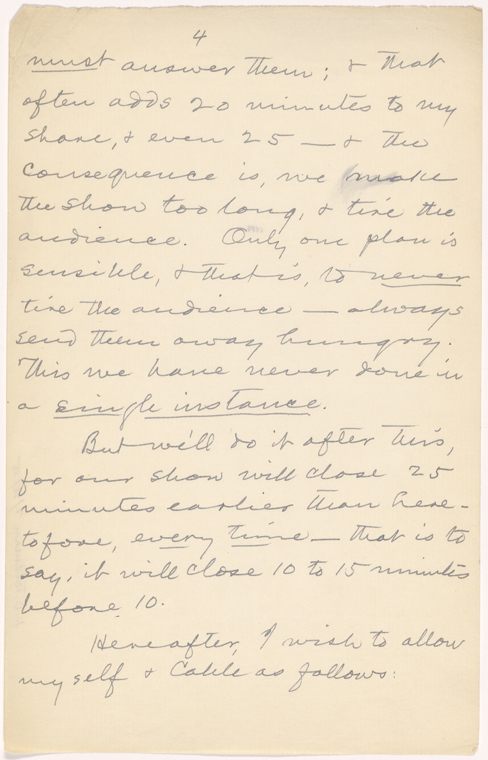 4
must answer them; & that
often adds 20 minutes to my
share, & even 25 — & the
consequence is, we make
the show too long, & tire the
audience. Only one plan is
sensible, & that is, to never
tire the audience — always
send them away hungry.
This we have never done in
a single instance.
But we'll do it after this,
for our show will close 25
minutes earlier than here-
tofore, every time — that is to
say, it will close 10 to 15 minutes
before 10.
Hereafter, I wish to allow
myself & Cable as follows: